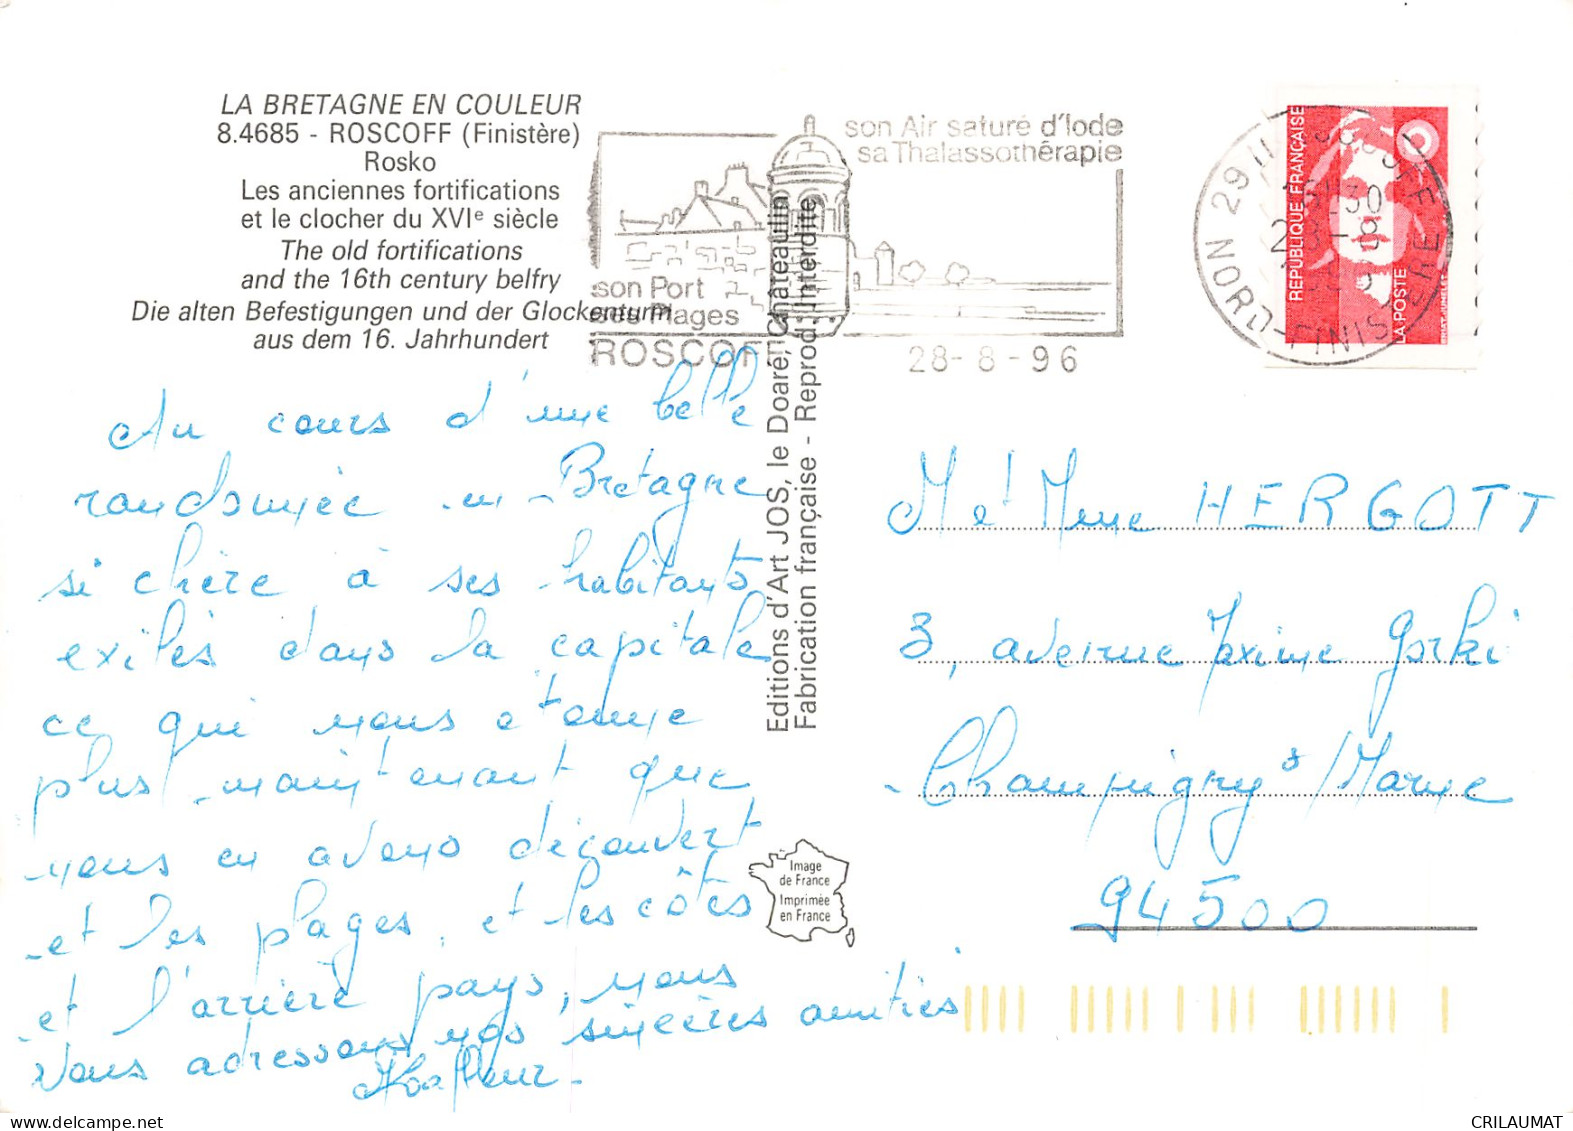 LA BRETAGNE EN COULEUR
8.4685 - ROSCOFF (Finistère)
Rosko
Les anciennes fortifications
et le clocher du XVIe siècle
The old fortifications
and the 16th century belfry
Die alten Befestigungen und der Glockenturm
aus dem 16. Jahrhundert
son Air saturé d'Iode
sa Thalassothérapie
son Port
ses Plages
ROSCOFF
28-8-96
29 ROSCOFF
NORD-FINISTERE
REPUBLIQUE FRANÇAISE
LA POSTE
Au cours d'une belle
randonnée en Bretagne
si chère à ses habitants
exilés dans la capitale
ce qui nous étonne
plus maintenant que
nous en avons découvert
et les plages, et les côtes
et l'arrière pays, nous
vous adressons nos sincères amitiés
Editions d'Art JOS, le Doaré, Châteaulin
Fabrication française - Reprod. Interdite
Image
de France
Imprimée
en France
M et Mme HERGOTT
3, avenue Maxime Gorki
Champigny s/Marne
94500
CRILAUMAT